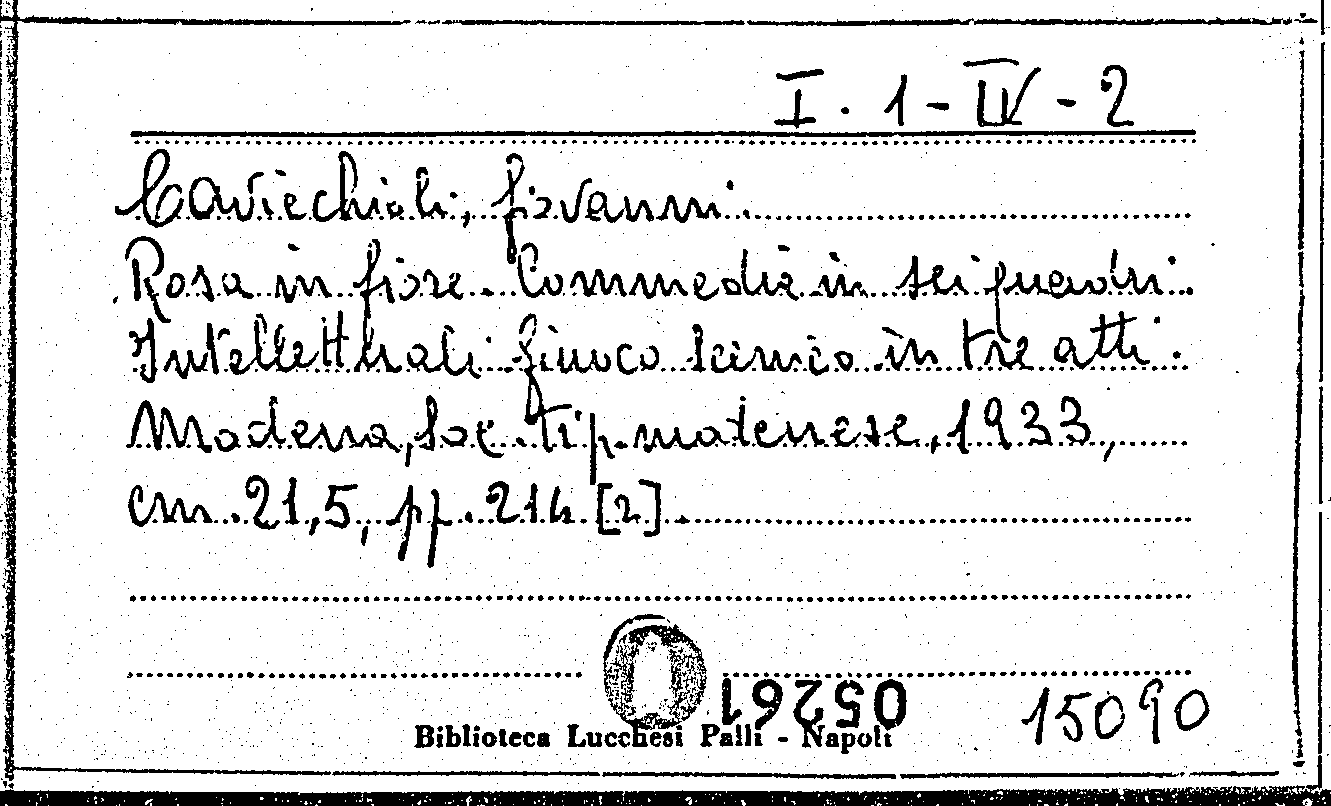 I. 1 - IV - 2
Caviechioli, Giovanni.
Rosa in fiore. Commedia in sei quadri.
Intellettuali giuoco scenico in tre atti.
Modena, Soc. tip. matenese, 1933,
cm. 21,5, pp. 214 [2].
05261
15090
Biblioteca Lucchesi Palli - Napoli